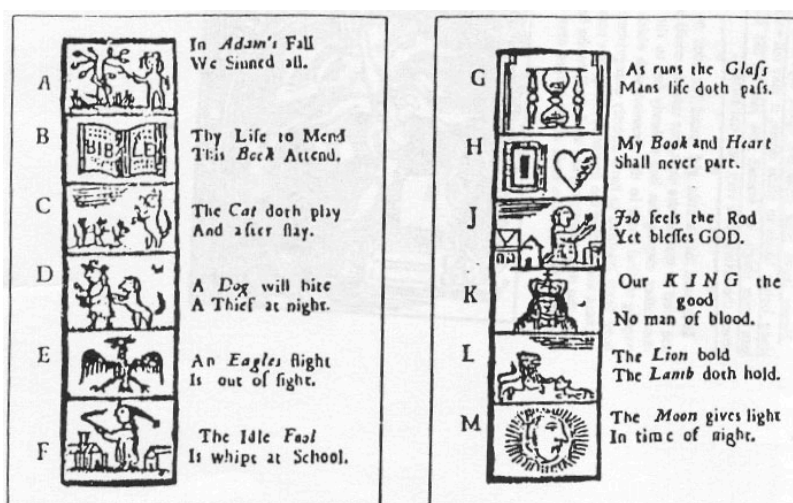 A
In Adam's Fall
We Sinned all.
B
BIBLE
Thy Life to Mend
This Book Attend.
C
The Cat doth play
And after slay.
D
A Dog will bite
A Thief at night.
E
An Eagles flight
Is out of sight.
F
The Idle Fool
Is whipt at School.
G
As runs the Glaſs
Mans life doth paſs.
H
My Book and Heart
Shall never part.
J
Job feels the Rod
Yet bleſſes GOD.
K
Our KING the
good
No man of blood.
L
The Lion bold
The Lamb doth hold.
M
The Moon gives light
In time of night.